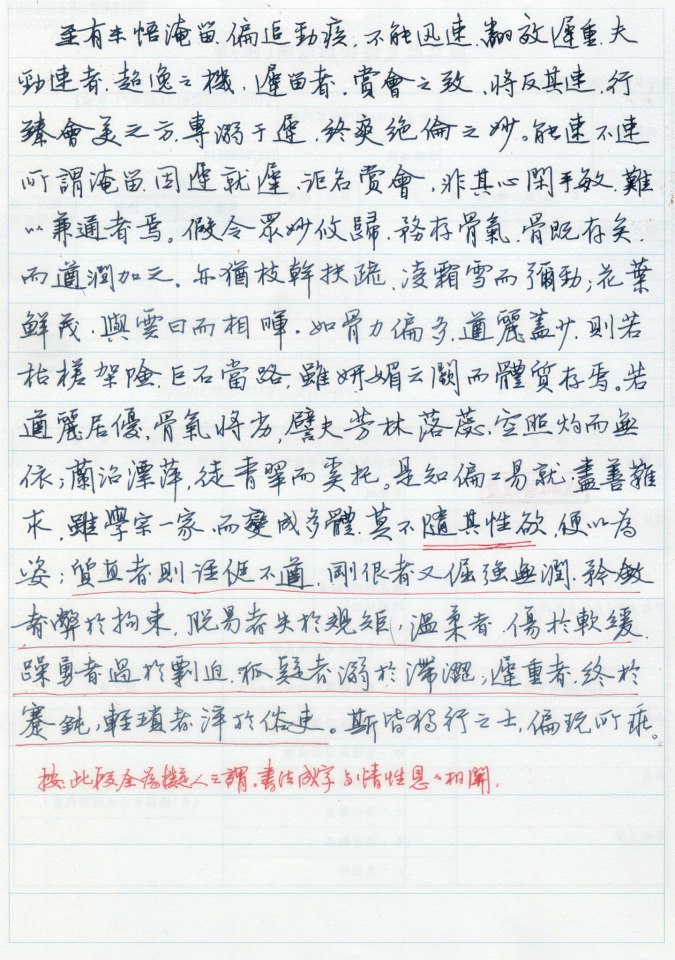 至有未悟淹留，偏追勁疾，不能迅速，翻效遲重。夫
勁速者，超逸之機，遲留者，賞會之致，將反其速，行
臻會美之方，專溺于遲，終爽絕倫之妙。能速不速
所謂淹留，因遲就遲，詎名賞會，非其心閑手敏，難
以兼通者焉。假令眾妙攸歸，務存骨氣，骨既存矣，
而遒潤加之。亦猶枝幹扶疏，凌霜雪而彌勁；花葉
鮮茂，與雲日而相暉。如骨力偏多，遒麗蓋少，則若
枯槎架險，巨石當路，雖妍媚云闕而體質存焉。若
遒麗居優，骨氣將劣，譬夫芳林落蕊，空照灼而無
依；蘭沼漂萍，徒青翠而奚托。是知偏工易就，盡善難
求，雖學宗一家，而變成多體，莫不隨其性欲，便以為
姿；質直者則俓侹不遒，剛佷者又倔強無潤，矜斂
者弊於拘束，脫易者失於規矩，溫柔者，傷於軟緩，
躁勇者過於剽迫，狐疑者溺於滯澀，遲重者，終於
蹇鈍，輕瑣者淬於俗吏。斯皆獨行之士，偏玩所乖。
按，此段全為擬人之謂，書法成字與情性息息相關，